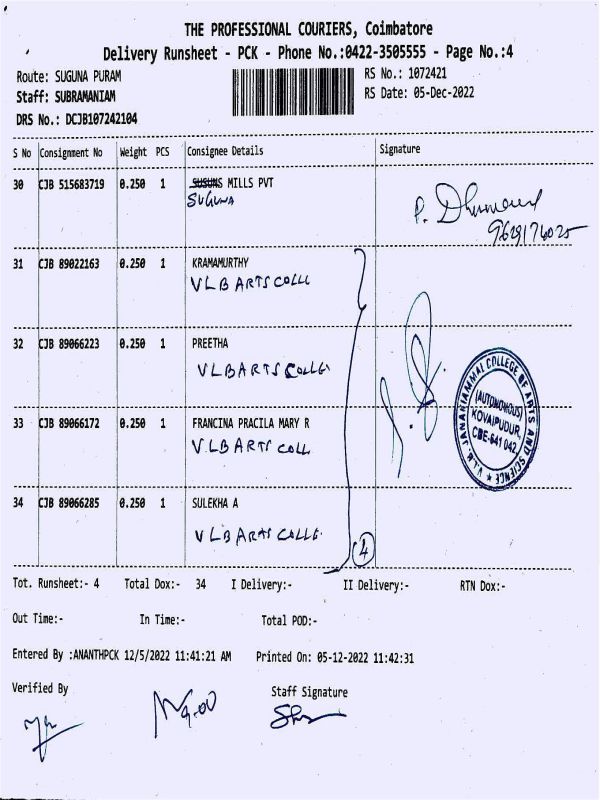 THE PROFESSIONAL COURIERS, Coimbatore
Delivery Runsheet - PCK - Phone No.:0422-3505555 - Page No.:4
Route: SUGUNA PURAM
RS No.: 1072421
Staff: SUBRAMANIAM
RS Date: 05-Dec-2022
DRS No.: DCJB107242104
S No Consignment No Weight PCS Consignee Details Signature
30 CJB 515683719 0.250 1 MILLS PVT
SUGUNA
P.
9629174025
31 CJB 89022163 0.250 1 KRAMAMURTHY
VLB ARTS COLL
32 CJB 89066223 0.250 1 PREETHA
VLB ARTS COLLEGE
33 CJB 89066172 0.250 1 FRANCINA PRACILA MARY R
V.LB ARTS COLL
34 CJB 89066285 0.250 1 SULEKHA A
VLB ARTS COLLE.
4
V.L.B. JANAKIAMMAL COLLEGE OF ARTS AND SCIENCE
(AUTONOMOUS)
KOVAIPUDUR,
CBE-641 042
Tot. Runsheet:- 4 Total Dox:- 34 I Delivery:- II Delivery:- RTN Dox:-
Out Time:- In Time:- Total POD:-
Entered By :ANANTHPCK 12/5/2022 11:41:21 AM Printed On: 05-12-2022 11:42:31
Verified By Staff Signature